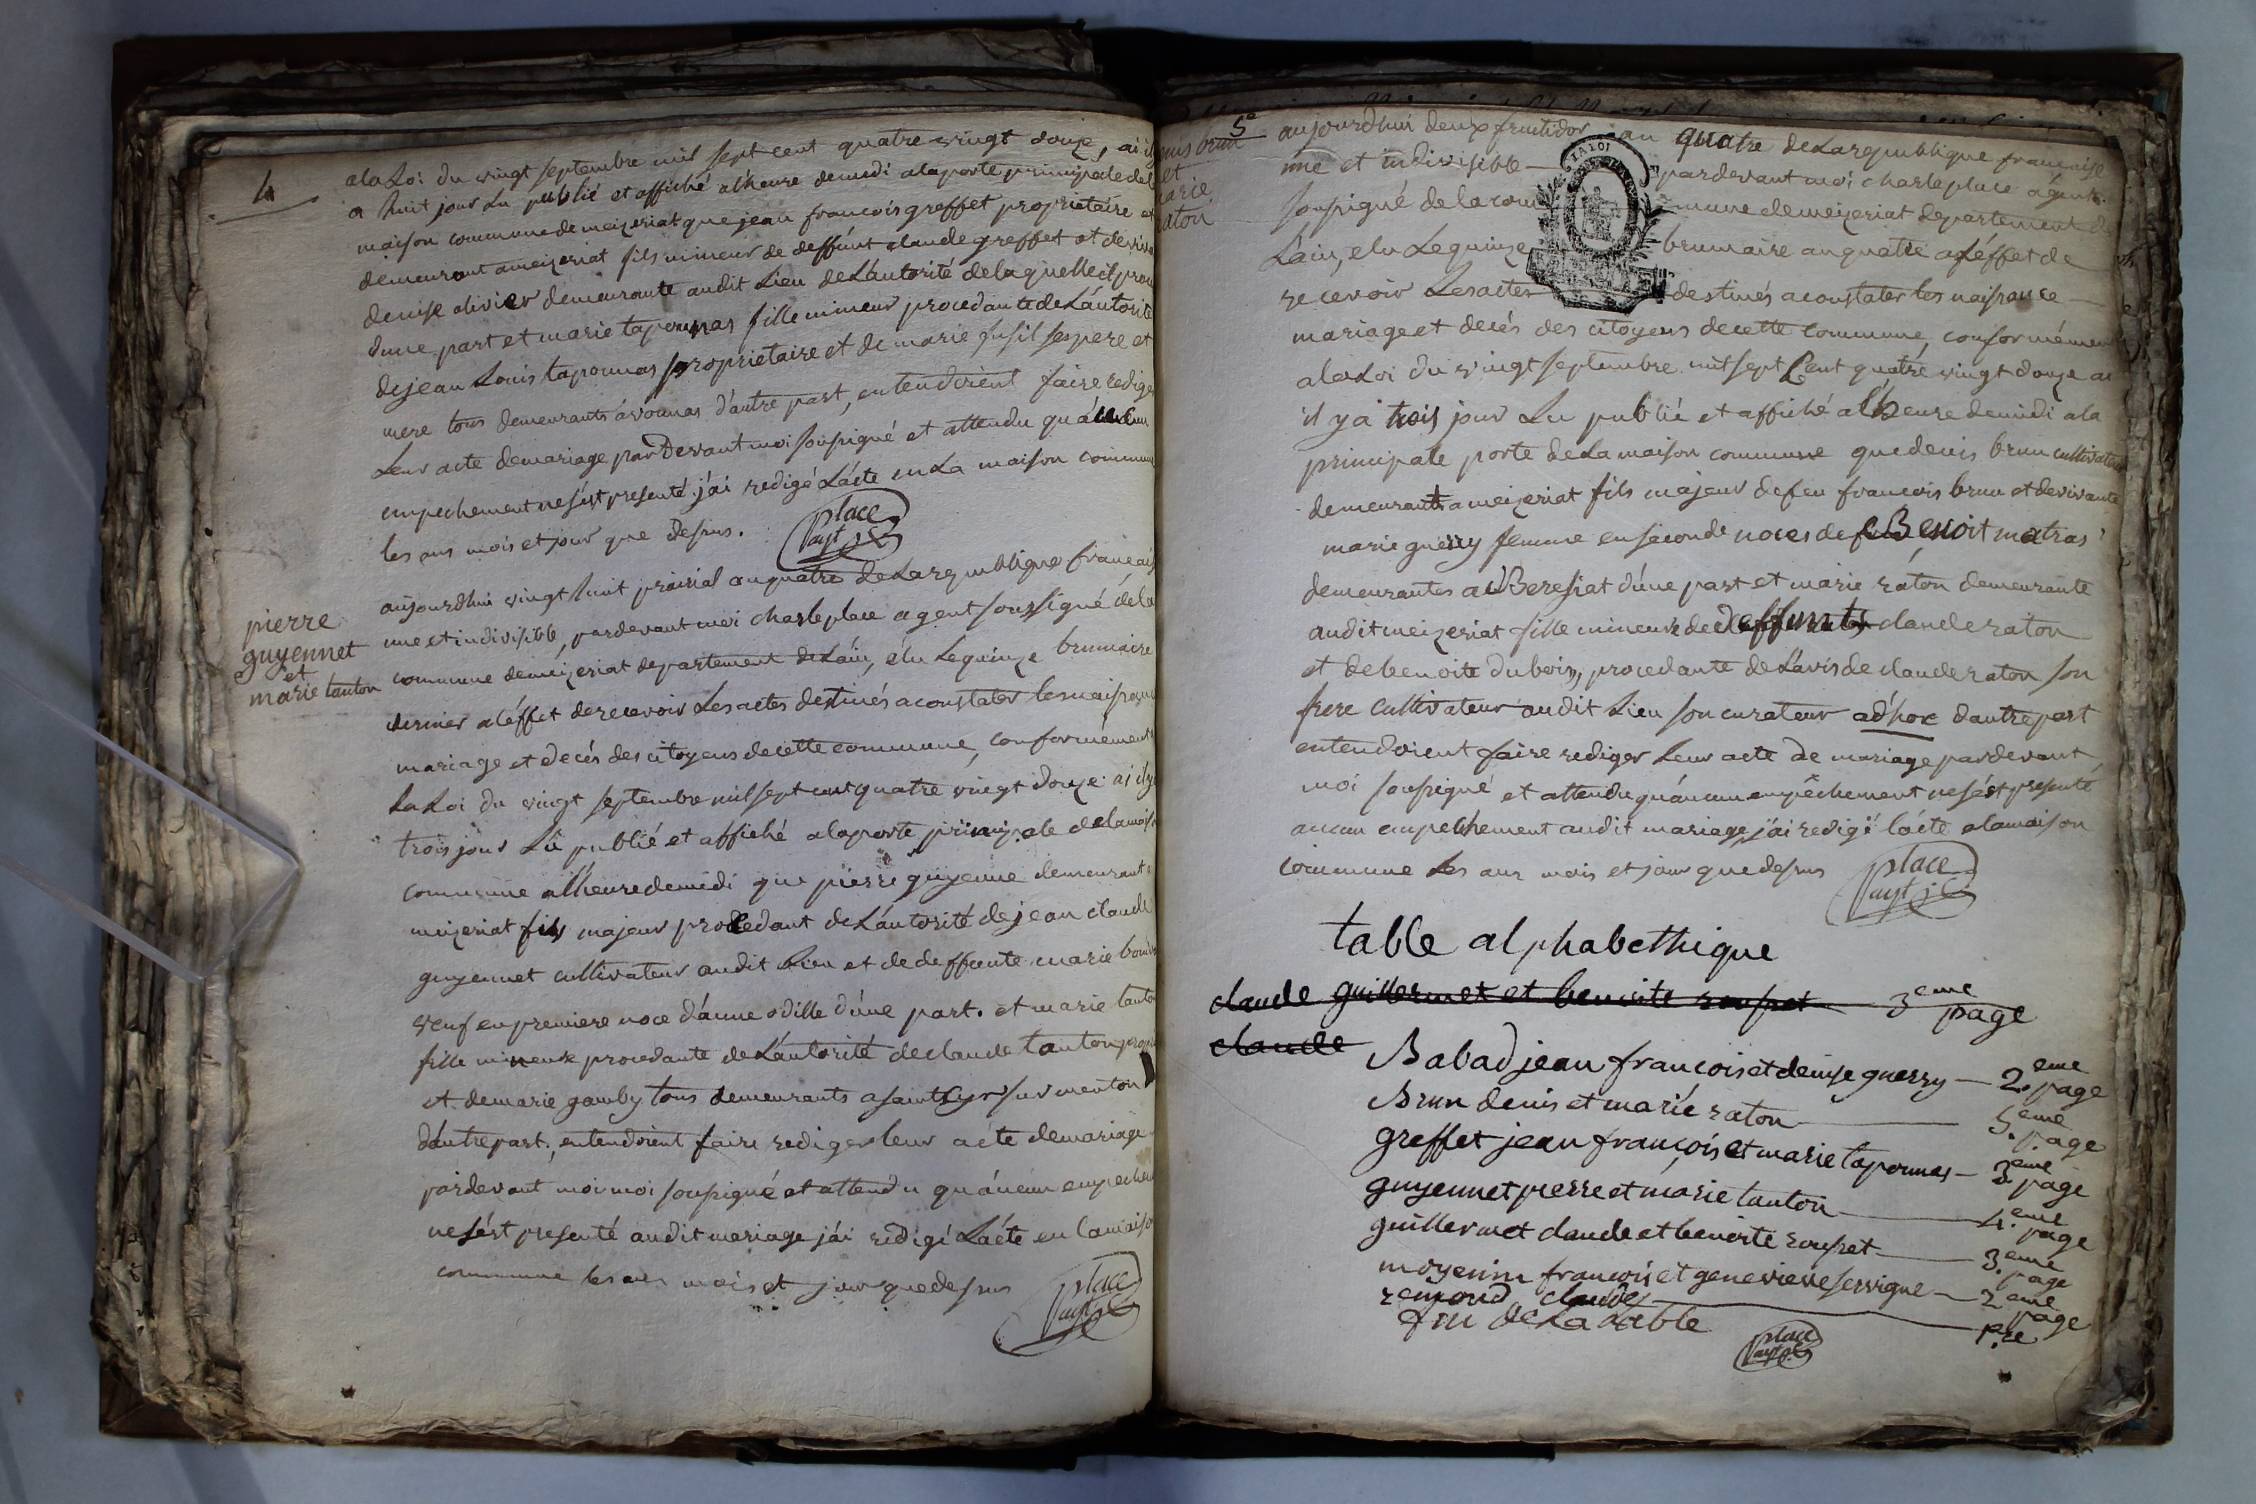 4
a la Loi du vingt septembre mil sept cent quatre vingt douze, ai il
a huit jour Lu publié et affiché a lheure de midi a la porte principale de la
maison commune de meizeriat que jean francois greffet proprietaire et
demeurant a meizeriat fils mineur de deffunt claude greffet et de vivante
denise olivier demeurante au dit Lieu de L'autorité de laquelle il proc
dune part et marie taponnas fille mineur procedante de L'autorité
de jean Louis taponnas proprietaire et de marie fusil ses pere et
mere tous demeurants a vonnas d'autre part, entendoient faire rediger
Leur acte de mariage par Devant moi soussigné et attendu qu'aucun
empechement ne s'est presenté j'ai redigé L'acte en La maison commune
les ans mois et jour que dessus.
place
agt
pierre
guyennet
et
marie tanton
aujourdhui vingt huit prairial an quatre de La republique francais
une et indivisible, par devant moi charle place agent soussigné, de la
commune de meizeriat departement de L'ain, elu Le quinze brumaire
dernier a l'éffet de recevoir Les actes destinés a constater les naissance
mariage et decés des citoyens de cette commune, conformément
La Loi du vingt septembre mil sept cent quatre vingt douze ai il y a
trois jour Lu publié et affiché a la porte principale de la maison
commune a l'heure de midi que pierre guyenne demeurant a
meizeriat fils majeur procedant de L'autorité de jean claude
guyennet cultivateur au dit Lieu et de deffunte marie
veuf en premiere noce d'anne odille d'une part. et marie tanton
fille mineure procedante de L'autorité de claude tanton prop
et de marie gamby tous demeurants a saint Cyr sur menton
d'autre part, entendoient faire rediger leur acte de mariage
par devant moi moi soussigné et attendu qu'aucun empechem
ne s'est presenté au dit mariage j'ai redigé L'acte en la maison
commune les ans mois et jour que dessus
place
agt
5e
nis brun
et
arie
raton
aujourdhui deux fructidor an quatre de La republique francaise
une et indivisible par devant moi charle place agent
soussigné de la commune de meizeriat departement de
L'ain, elu Le quinze brumaire an quatre a L'éffet de
recevoir Les actes destinés a constater les naissance
mariage et decés des citoyens de cette commune, conformément
a la Loi du vingt septembre mil sept Cent quatre vingt douze ai
il y a trois jour Lu publié et affiché a l'heure de midi a la
principale porte de La maison commune que denis brun cultivateur
demeurant a meizeriat fils majeur de feu francois brun et de vivante
marie guerry femme en seconde noces de Benoit matras
demeurantes a Beresiat d'une part et marie raton demeurante
au dit meizeriat fille mineure de deffunts claude raton
et de benoite dubois, procedante de L'avis de claude raton son
frere cultivateur au dit Lieu son curateur ad'hoc d'autre part
entendoient faire rediger Leur acte de mariage par devant
moi soussigné et attendu qu'aucun empêchement ne s'est presenté
aucun empechement au dit mariage, j'ai redigé l'acte a la maison
commune Les ans mois et jour que dessus
place
agt
table alphabethique
claude guillermet et benoite rousset 3eme page
claude
Babad jean francois et denise guerry — 2.eme page
Brun denis et marie raton — 5.eme page
greffet jean francois et marie taponnas — 3eme page
guyennet pierre et marie tanton — 4.eme page
guillermet claude et benoite rousset — 3.eme page
moyenin francois et genevieve servigne — 2eme page
remond claude — p.re
fin de La table
place
agt
LA LOI